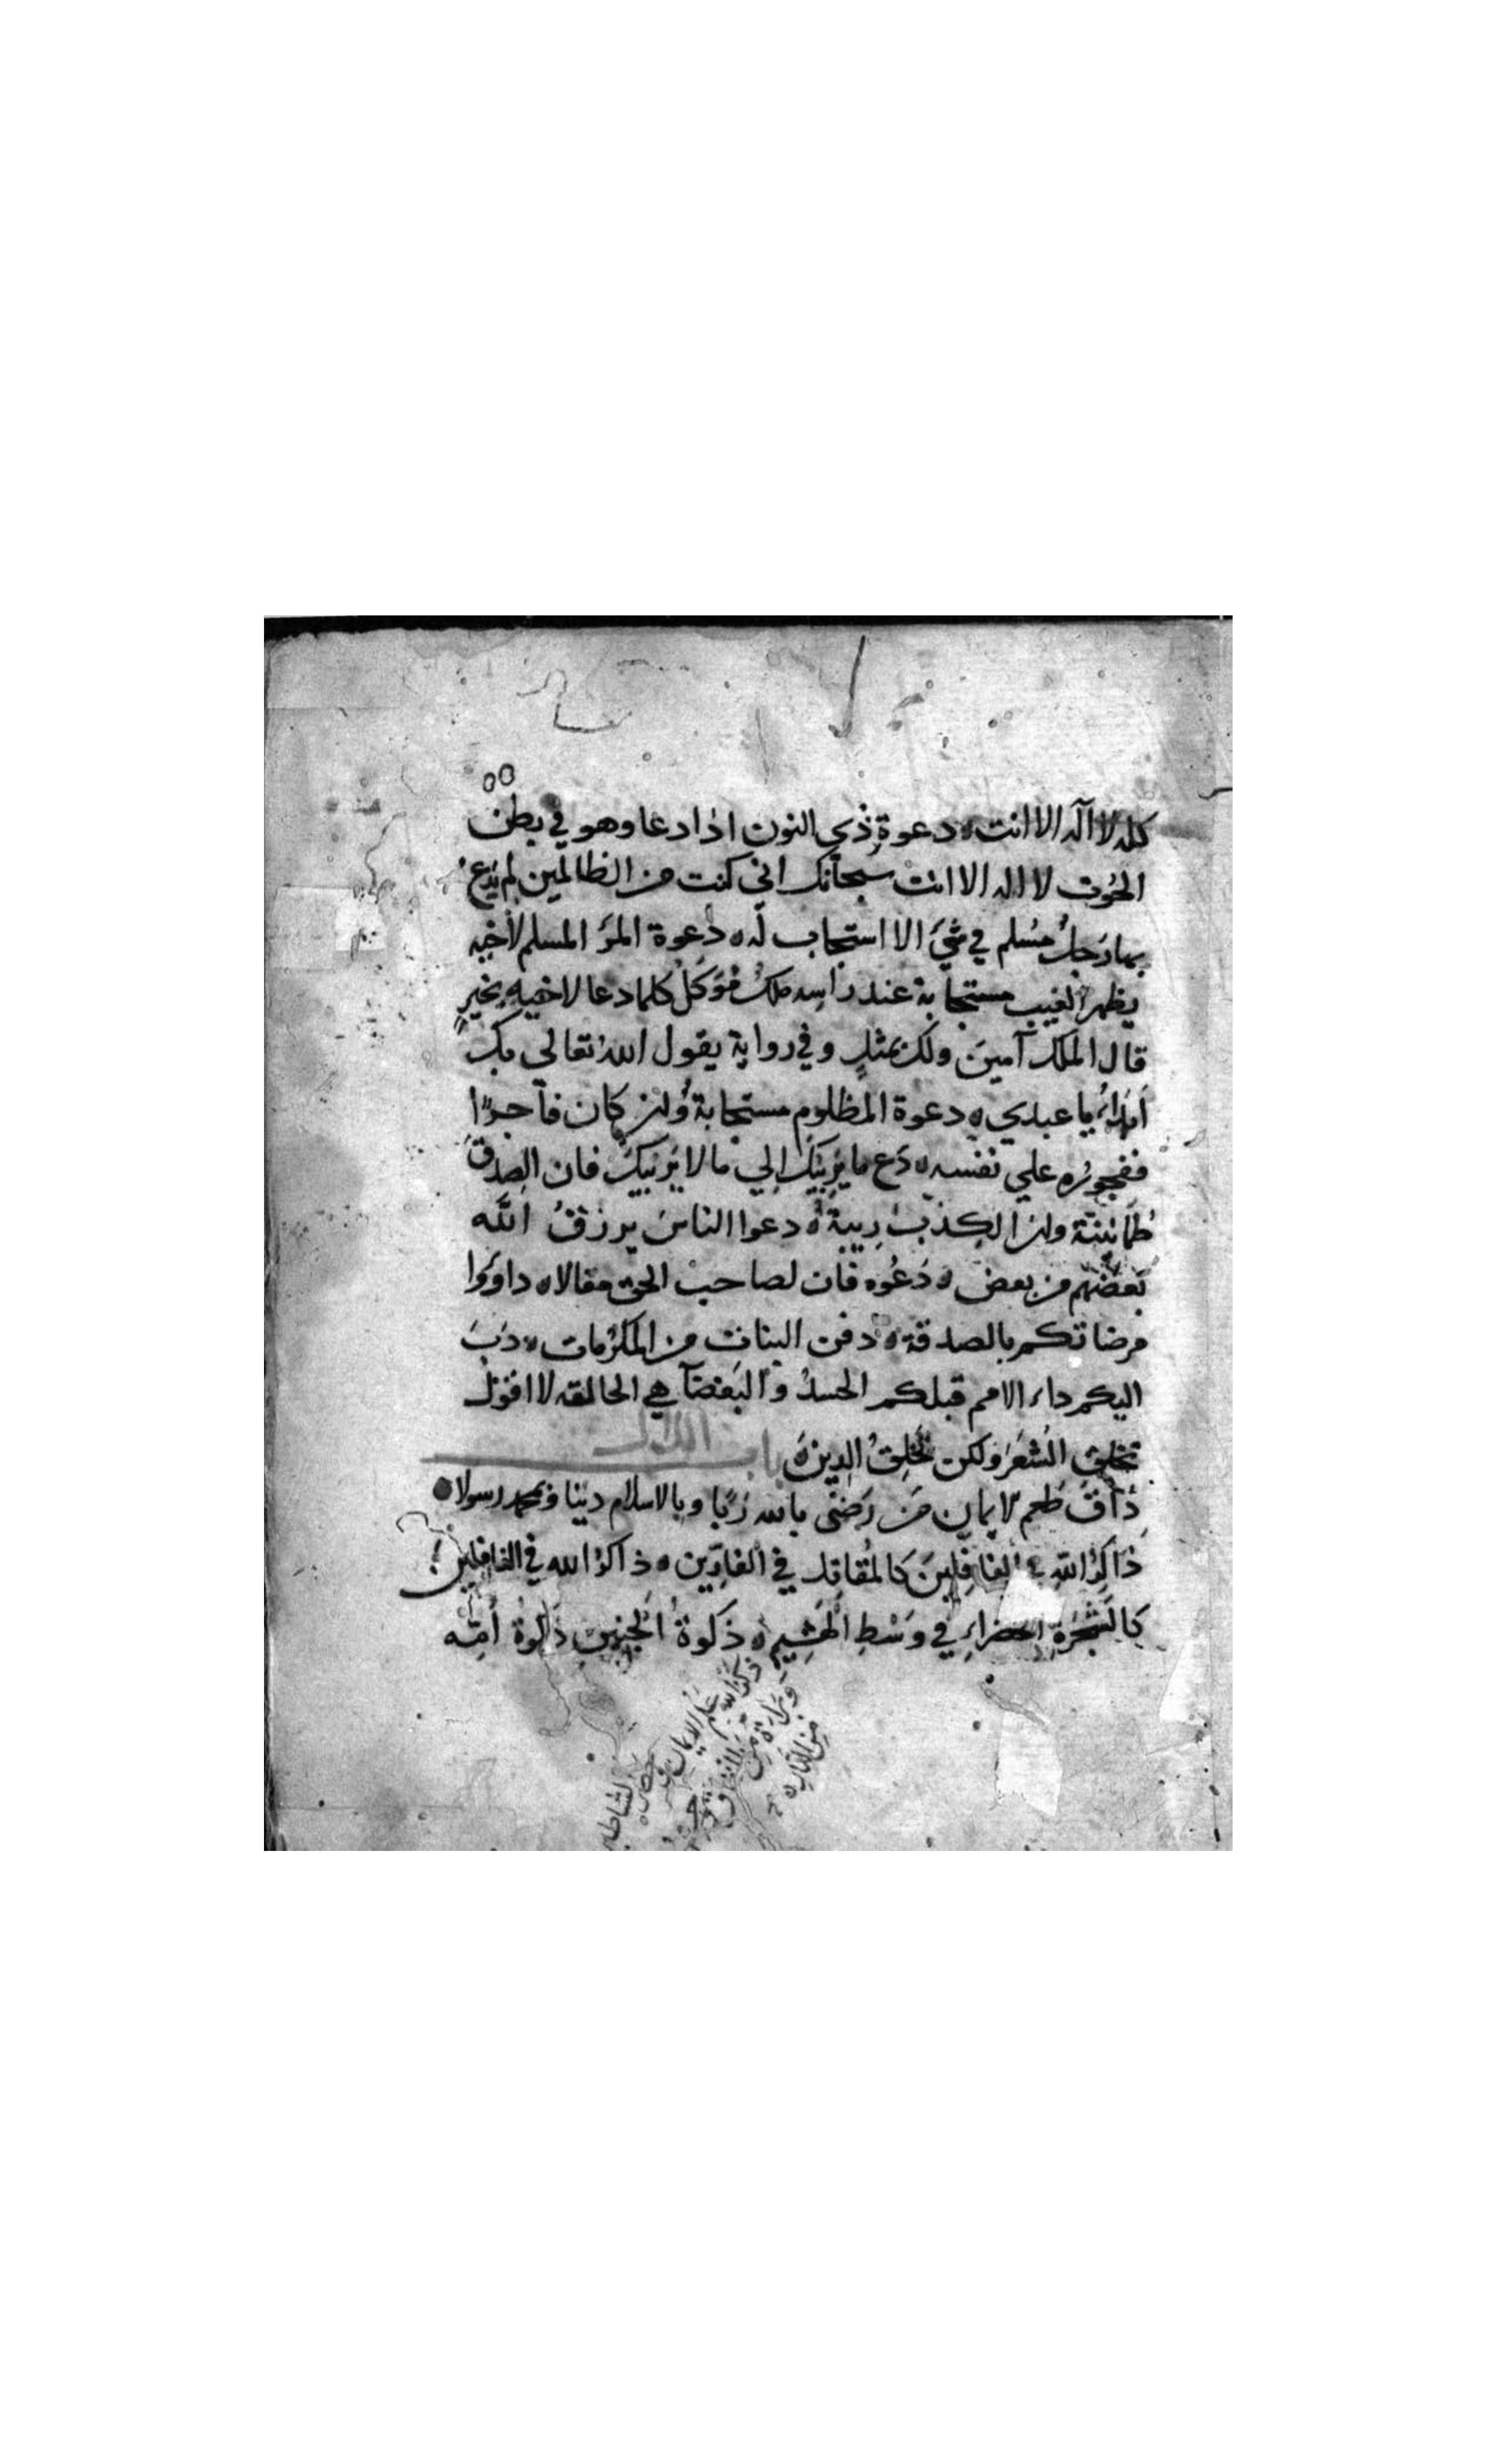 ٥٥
كله لا آله الا انت ٥ دعوة ذي النون اذا دعا وهو في بطن
الحُوت لا اله الا انت سبحانك اني كنت من الظالمين لم يَدعُ
بها رَجلٌ مُسلم في شَيءَ الا استجاب له ٥ دعوة المرَ المسلم لأخيه
بظهر الغيب مستجابة عند راسه ملكٌ مُوَكلٌ كلما دعا لاخيه بخيرٍ
قال الملك آمينَ ولك بمثلٍ وفي رواية يقول اللهُ تعالى بكَ
أبدأُ يا عبدي ٥ دعوة المظلوم مستجابة وُان كان فاجرًا
ففجورُه علي نفسه ٥ دَع ما يَرِيبَكَ إلي ما لا يَرِيبَكَ فان الصِدقَ
طُمَانينَة وان الكِذبَ رِيبة ٥ دعوا الناسَ يرزقُ اللَّه
بَعضَهُم من بعض ٥ دَعُوه فان لصاحب الحق مقالا ٥ داووا
مرضاتكم بالصدقة ٥ دفن البنات من المكرُمات ٥ دَبَ
اليكم داء الامم قبلكم الحسدُ والبَغضآ هي الحالقه لا اقول
تحلق الشعَرَ ولكن تَحلِقُ الدِينَ ٥ باب الذال
ذَاقَ طَعم الايمان مَن رَضىَ بالله رَبًا وبالاسلام دينا وبمحمد رسولا ٥
ذَاكِرُ اللهِ في الغافِلينَ كالمُقاتِل في الفارِّين ٥ ذاكرُ الله في الغافلين
كالشَجَرَةِ الخضراءِ في وَسْطِ الهَشِيم ٥ ذكوةُ الجنين ذكوةُ أُمِّه
ذكرُ الله
علم الايمان
وبراءة من
النفاق
من النار ٥